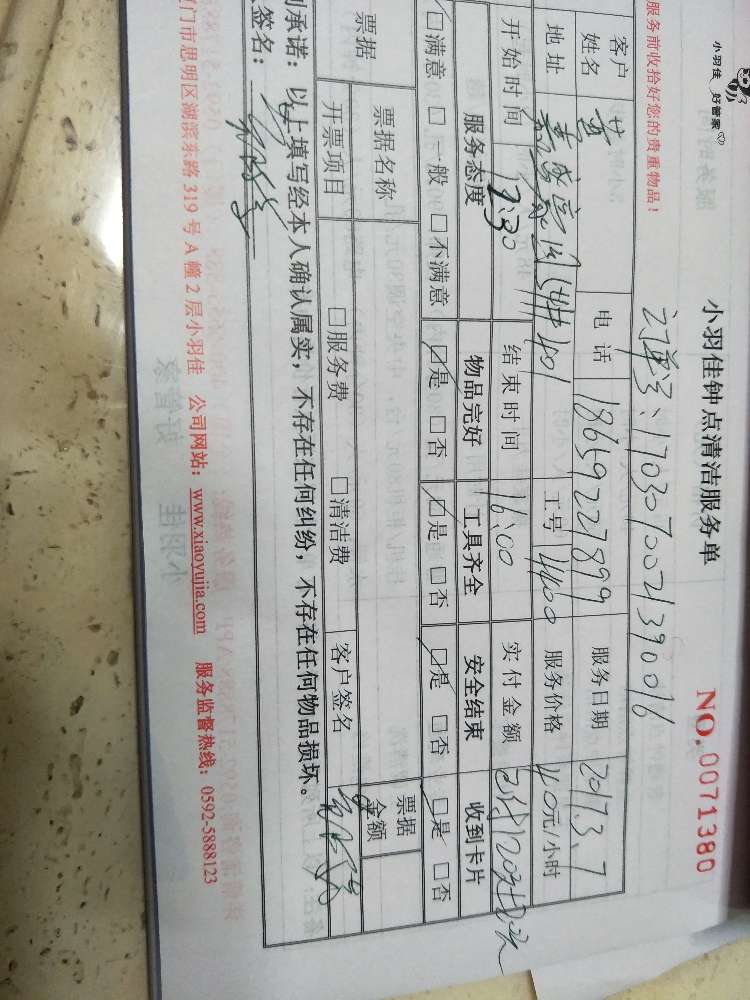 小羽佳 好管家
小羽佳钟点清洁服务单
NO.0071380
服务前收拾好您的贵重物品!
订单号:1703070021390016
客户姓名 黄 电话 18659227899 服务日期 2017.3.7
地址 嘉盛豪园 401 工号 4400 服务价格 40元/小时
开始时间 12:30 结束时间 16:00 实付金额 已付120元
服务态度 物品完好 工具齐全 安全结束 收到卡片
☑满意 □一般 □不满意 ☑是 □否 ☑是 □否 ☑是 □否 ☑是 □否
票据 票据名称 票据金额
开票项目 □服务费 □清洁费 客户签名
承诺:以上填写经本人确认属实,不存在任何纠纷,不存在任何物品损坏。
签名:
门市思明区湖滨东路 319 号 A 幢 2 层小羽佳 公司网站:www.xiaoyujia.com 服务监督热线:0592-5888123